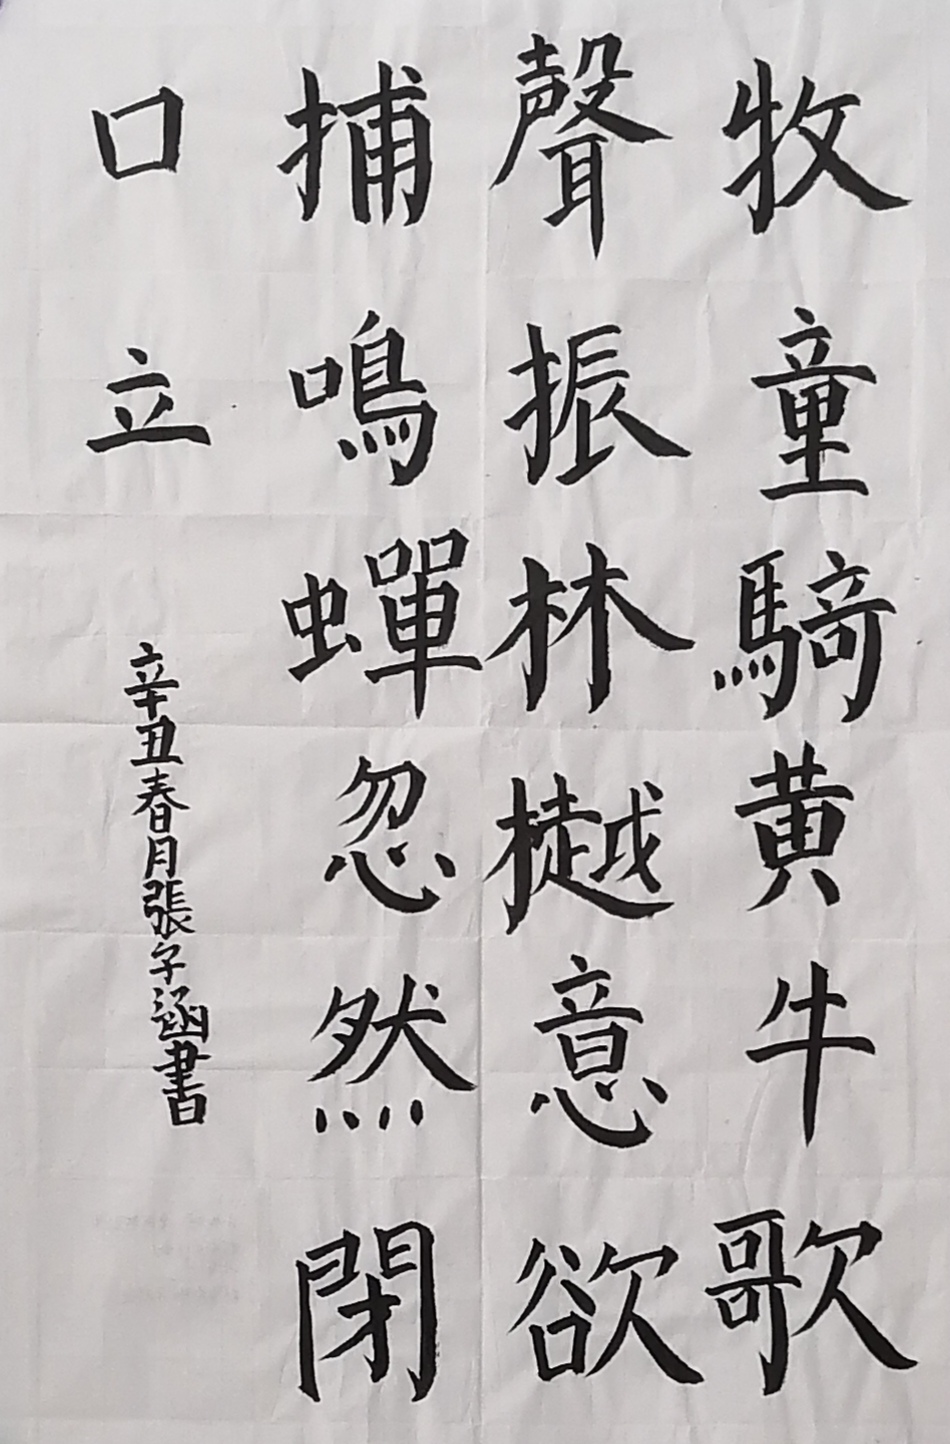 牧童騎黄牛歌
聲振林樾意欲
捕鳴蟬忽然閉
口立
辛丑春月張子涵書